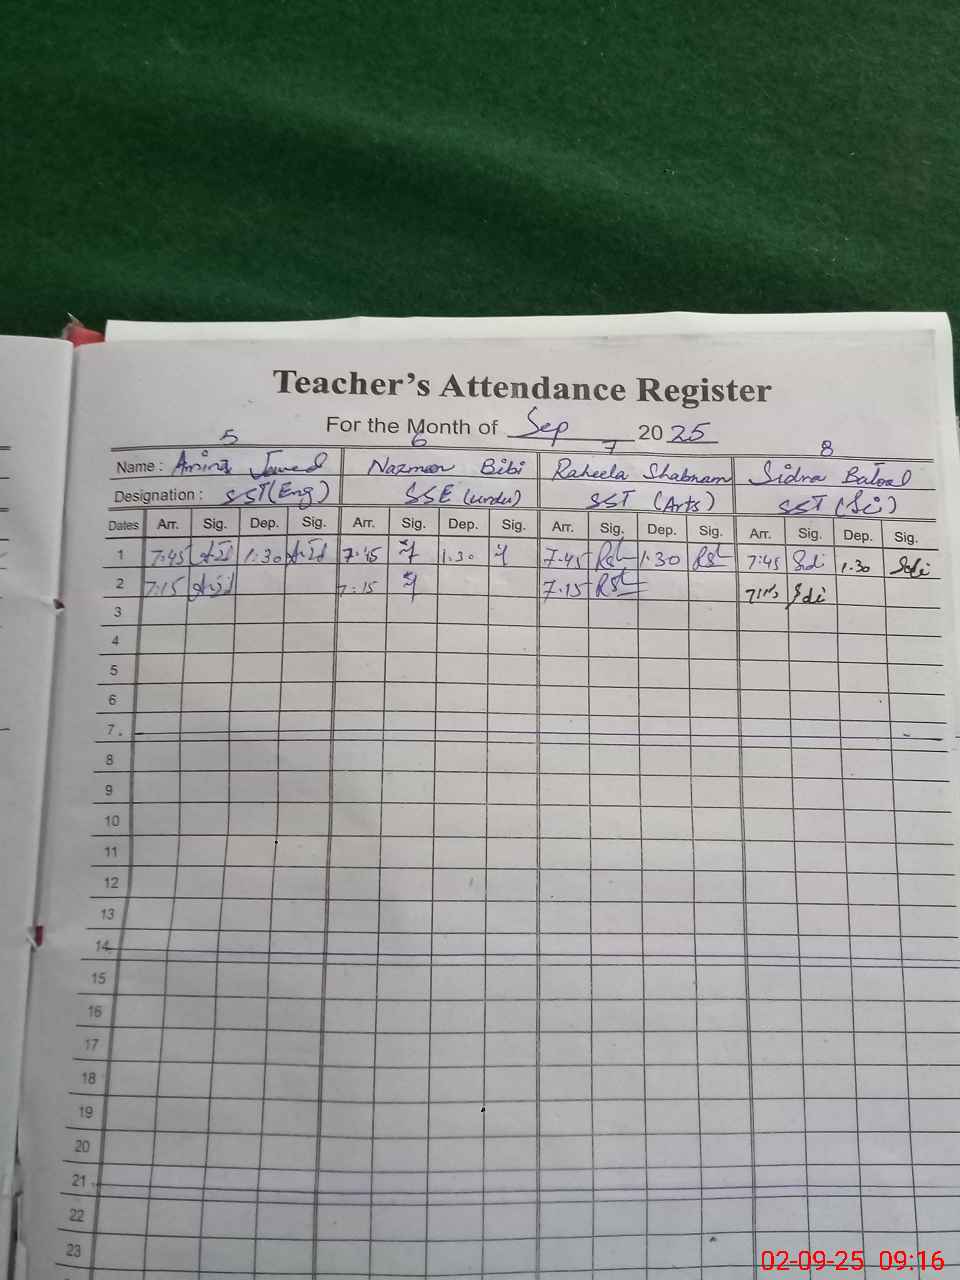 Teacher's Attendance Register
For the Month of Sep 2025
5 6 7 8
Name : Amina Javed Nazman Bibi Raheela Shabnam Sidra Batool
Designation : SST(Eng) SSE (urdu) SST (Arts) SST (Sci)
Dates Arr. Sig. Dep. Sig. Arr. Sig. Dep. Sig. Arr. Sig. Dep. Sig. Arr. Sig. Dep. Sig.
1 7:45 1:30 7:45 1.30 7.45 1.30 7:45 Sdi 1.30 Sdi
2 7:15 7:15 7.15 7:15 Sdi
3
4
5
6
7
8
9
10
11
12
13
14
15
16
17
18
19
20
21
22
23
02-09-25 09:16